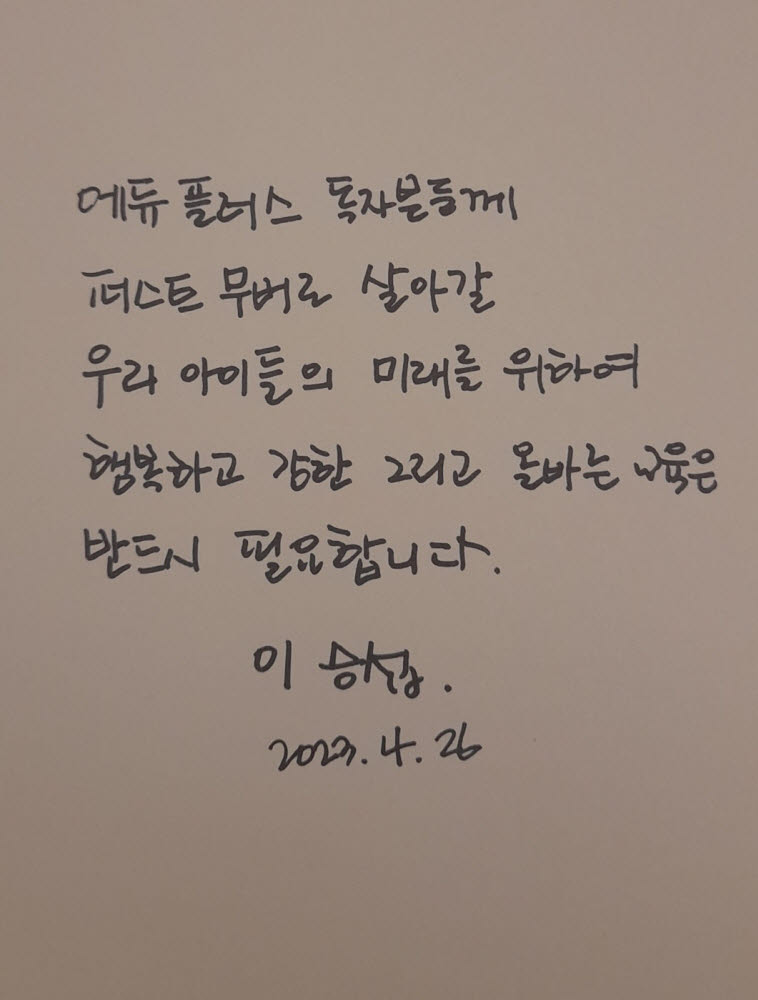 에듀플러스 독자분들께
퍼스트 무버로 살아갈
우리 아이들의 미래를 위하여
행복하고 강한 그리고 올바른 교육은
반드시 필요합니다.
이 승섭.
2023.4.26